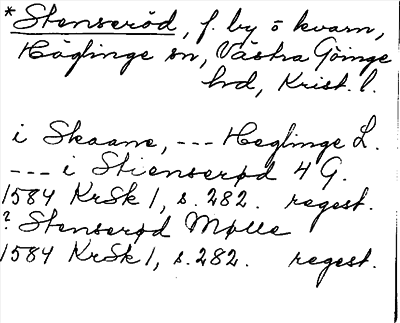 * Stenseröd, f. by o kvarn,
Häglinge sn, Västra Göinge
hd, Krist. l.
i Skaane, --- Heglinge L.
--- i Stienserød 4 G.
1584 KrSk 1, s. 282. regest.
? Stenserød Mølle
1584 KrSk 1, s. 282. regest.